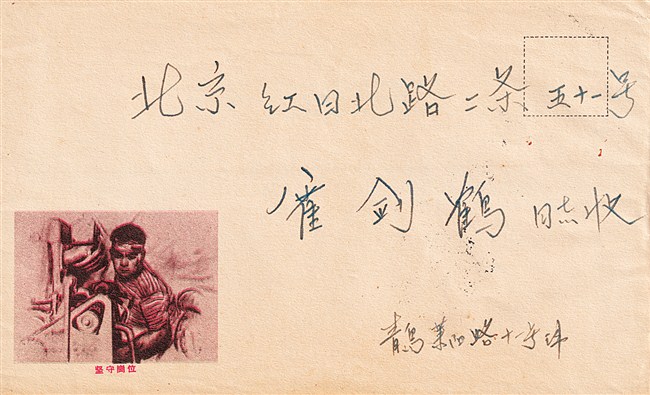 北京 红日北路二条 五十一号
崔剑鹤 同志收
青岛莱阳路十号
坚守崗位